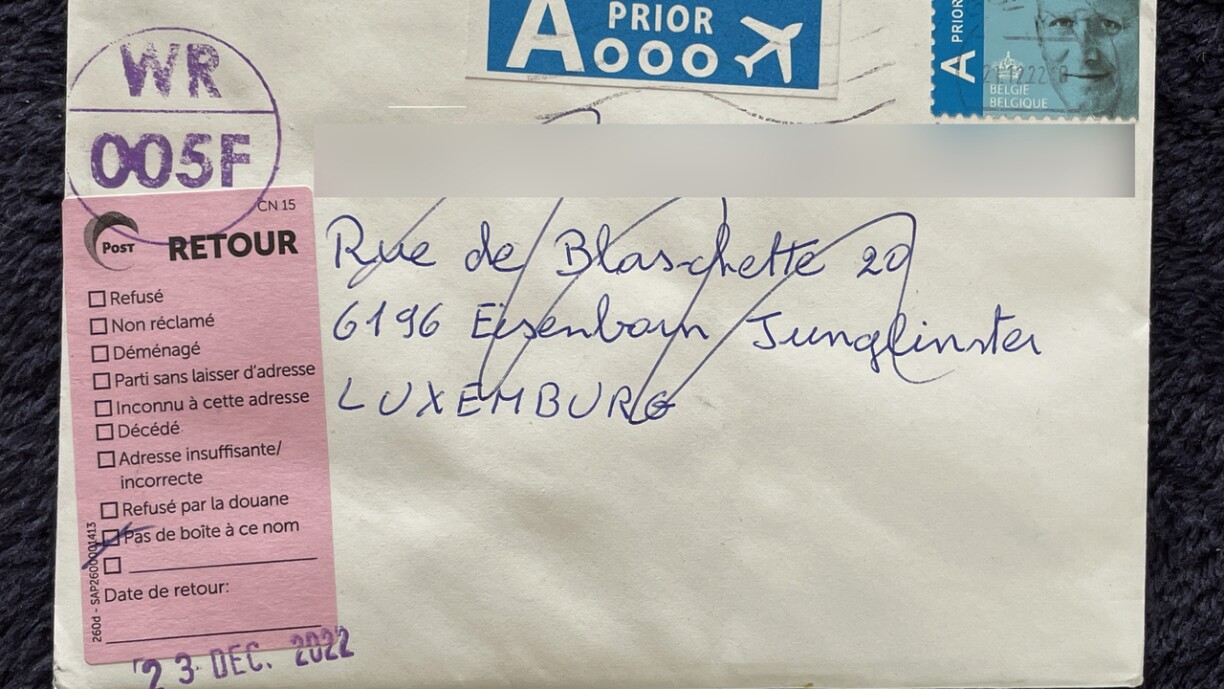 A PRIOR
OOO
A PRIOR
BELGIE
BELGIQUE
WR
005F
CN 15
POST RETOUR
Refusé
Non réclamé
Déménagé
Parti sans laisser d'adresse
Inconnu à cette adresse
Décédé
Adresse insuffisante/
incorrecte
Refusé par la douane
Pas de boîte à ce nom
Date de retour:
260d - SAP2600001413
23 DEC. 2022
Rue de Blaschette 20
6196 Eisenborn Junglinster
LUXEMBURG